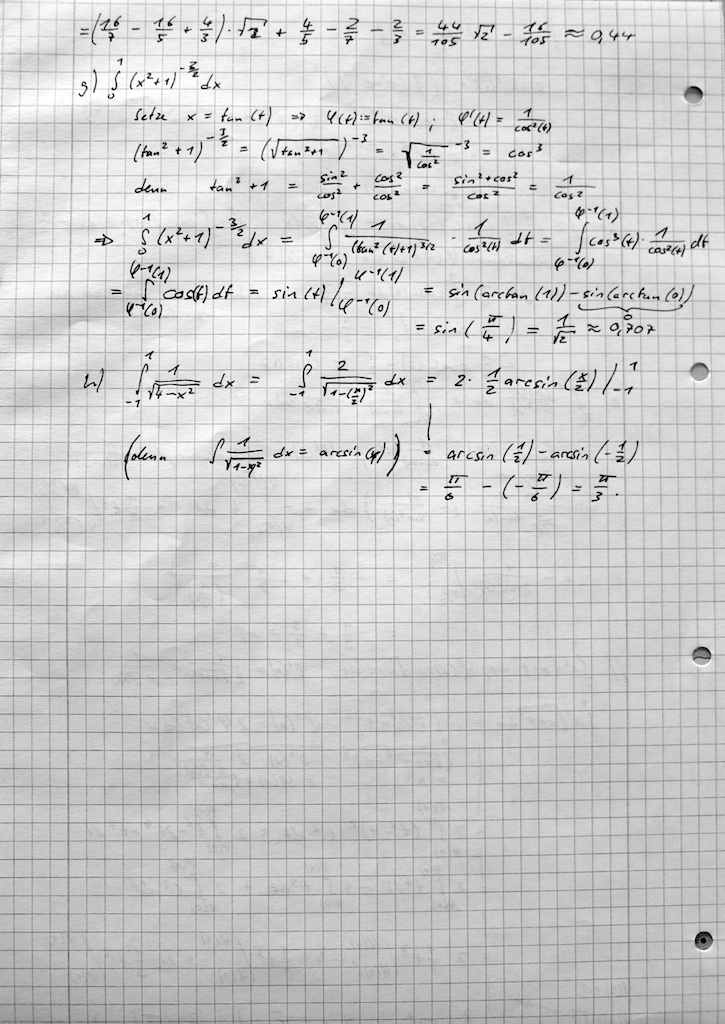 = (16/7 - 16/5 + 4/3) · √2 + 4/5 - 2/7 - 2/3 = 44/105 √2 - 16/105 ≈ 0,44
g) ∫₀¹ (x²+1)^(-3/2) dx
Setze x = tan(t) ⇒ φ(t):=tan(t); φ'(t) = 1/cos²(t)
(tan²+1)^(-3/2) = (√(tan²+1))^(-3) = √(1/cos²)^(-3) = cos³
denn tan²+1 = sin²/cos² + cos²/cos² = (sin²+cos²)/cos² = 1/cos²
⇒ ∫₀¹ (x²+1)^(-3/2) dx = ∫_{φ⁻¹(0)}^{φ⁻¹(1)} 1/(tan²(t)+1)^(3/2) · 1/cos²(t) dt = ∫_{φ⁻¹(0)}^{φ⁻¹(1)} cos³(t) · 1/cos²(t) dt
= ∫_{φ⁻¹(0)}^{φ⁻¹(1)} cos(t) dt = sin(t) |_{φ⁻¹(0)}^{φ⁻¹(1)} = sin(arctan(1)) - sin(arctan(0))
0
= sin(π/4) = 1/√2 ≈ 0,707
h) ∫₋₁¹ 1/√(4-x²) dx = ∫₋₁¹ 2/√(1-(x/2)²) dx = 2 · 1/2 arcsin(x/2) |₋₁¹
(denn ∫ 1/√(1-y²) dx = arcsin(y)) = arcsin(1/2) - arcsin(-1/2)
= π/6 - (-π/6) = π/3.